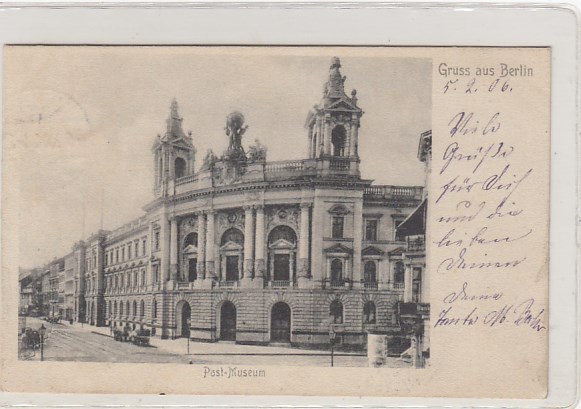 Gruss aus Berlin
5. 2. 06.
Viele
Grüße
für Dich
und die
lieben
Deinen
Deine
Tante M.
Post-Museum